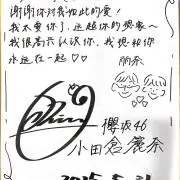 谢谢你对我如此的爱!
我太爱你了,远超你的想象~
我很高兴认识你,我想和你
永远在一起♡♡
朋奈
櫻坂46
小田倉麗奈
2025.5.31